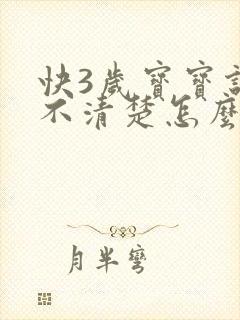 快3歲寶寶
不清楚怎麼
月半彎